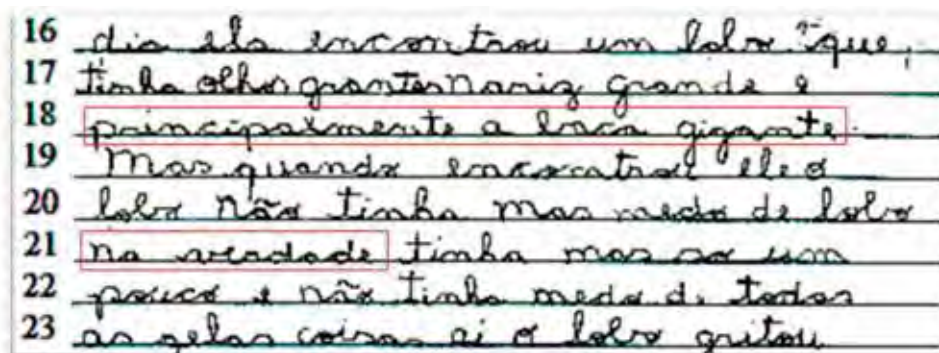 16 dia ela encontrou um lobo que,
17 tinha olhos grantes nariz grande e
18 principalmente a boca gigante.
19 Mas quando encontrou ele o
20 lobo não tinha mas medo de lobo
21 na verdade tinha mas so um
22 pouco e não tinha medo di todas
23 as gelas coisas ai o lobo gritou